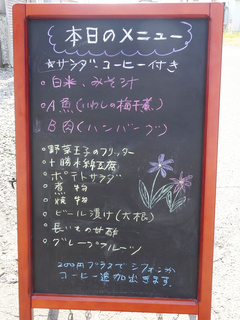 本日のメニュー
☆サラダコーヒー付き
○白米、みそ汁
○A 魚(いわしの梅干煮)
B 肉(ハンバーグ)
○野菜玉子のフリッター
○十勝木綿豆腐
○ポテトサラダ
○煮物
○焼物
○ビール漬け(大根)
○長いもの甘酢
○グレープフルーツ
200円プラスでシフォンか
コーヒー追加出来ます。